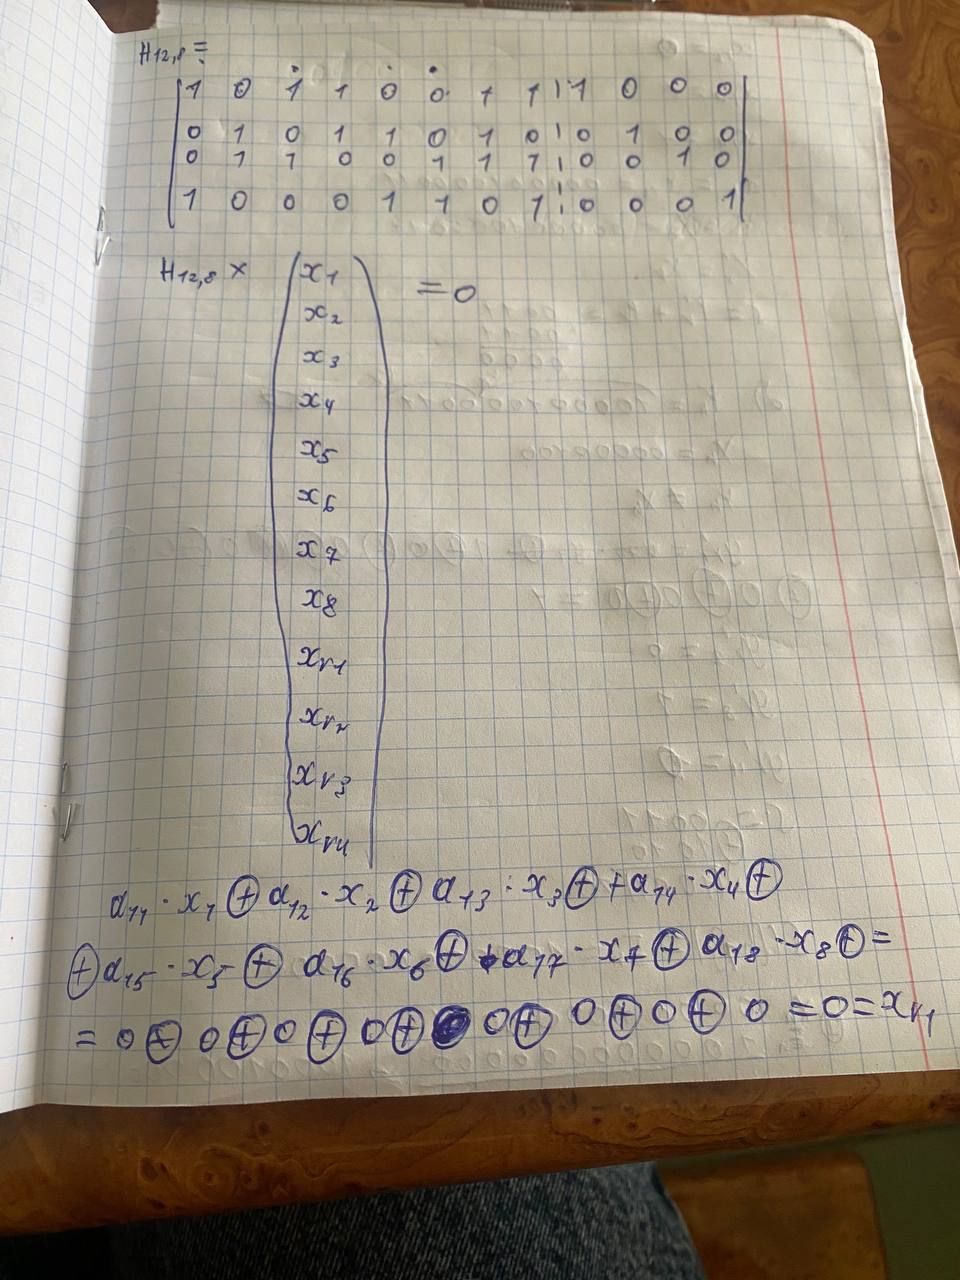 H12,8 =
1 0 1 1 0 0 1 1 1 0 0 0
0 1 0 1 1 0 1 0 0 1 0 0
0 1 1 0 0 1 1 1 0 0 1 0
1 0 0 0 1 1 0 1 0 0 0 1
H12,8 × x1 = 0
x2
x3
x4
x5
x6
x7
x8
xr1
xr2
xr3
xr4
a11 · x1 ⊕ a12 · x2 ⊕ a13 · x3 ⊕ + a14 · x4 ⊕
⊕ a15 · x5 ⊕ a16 · x6 ⊕ a17 · x7 ⊕ a18 · x8 ⊕ =
= 0 ⊕ 0 ⊕ 0 ⊕ 0 ⊕ 0 ⊕ 0 ⊕ 0 ⊕ 0 = 0 = xr1